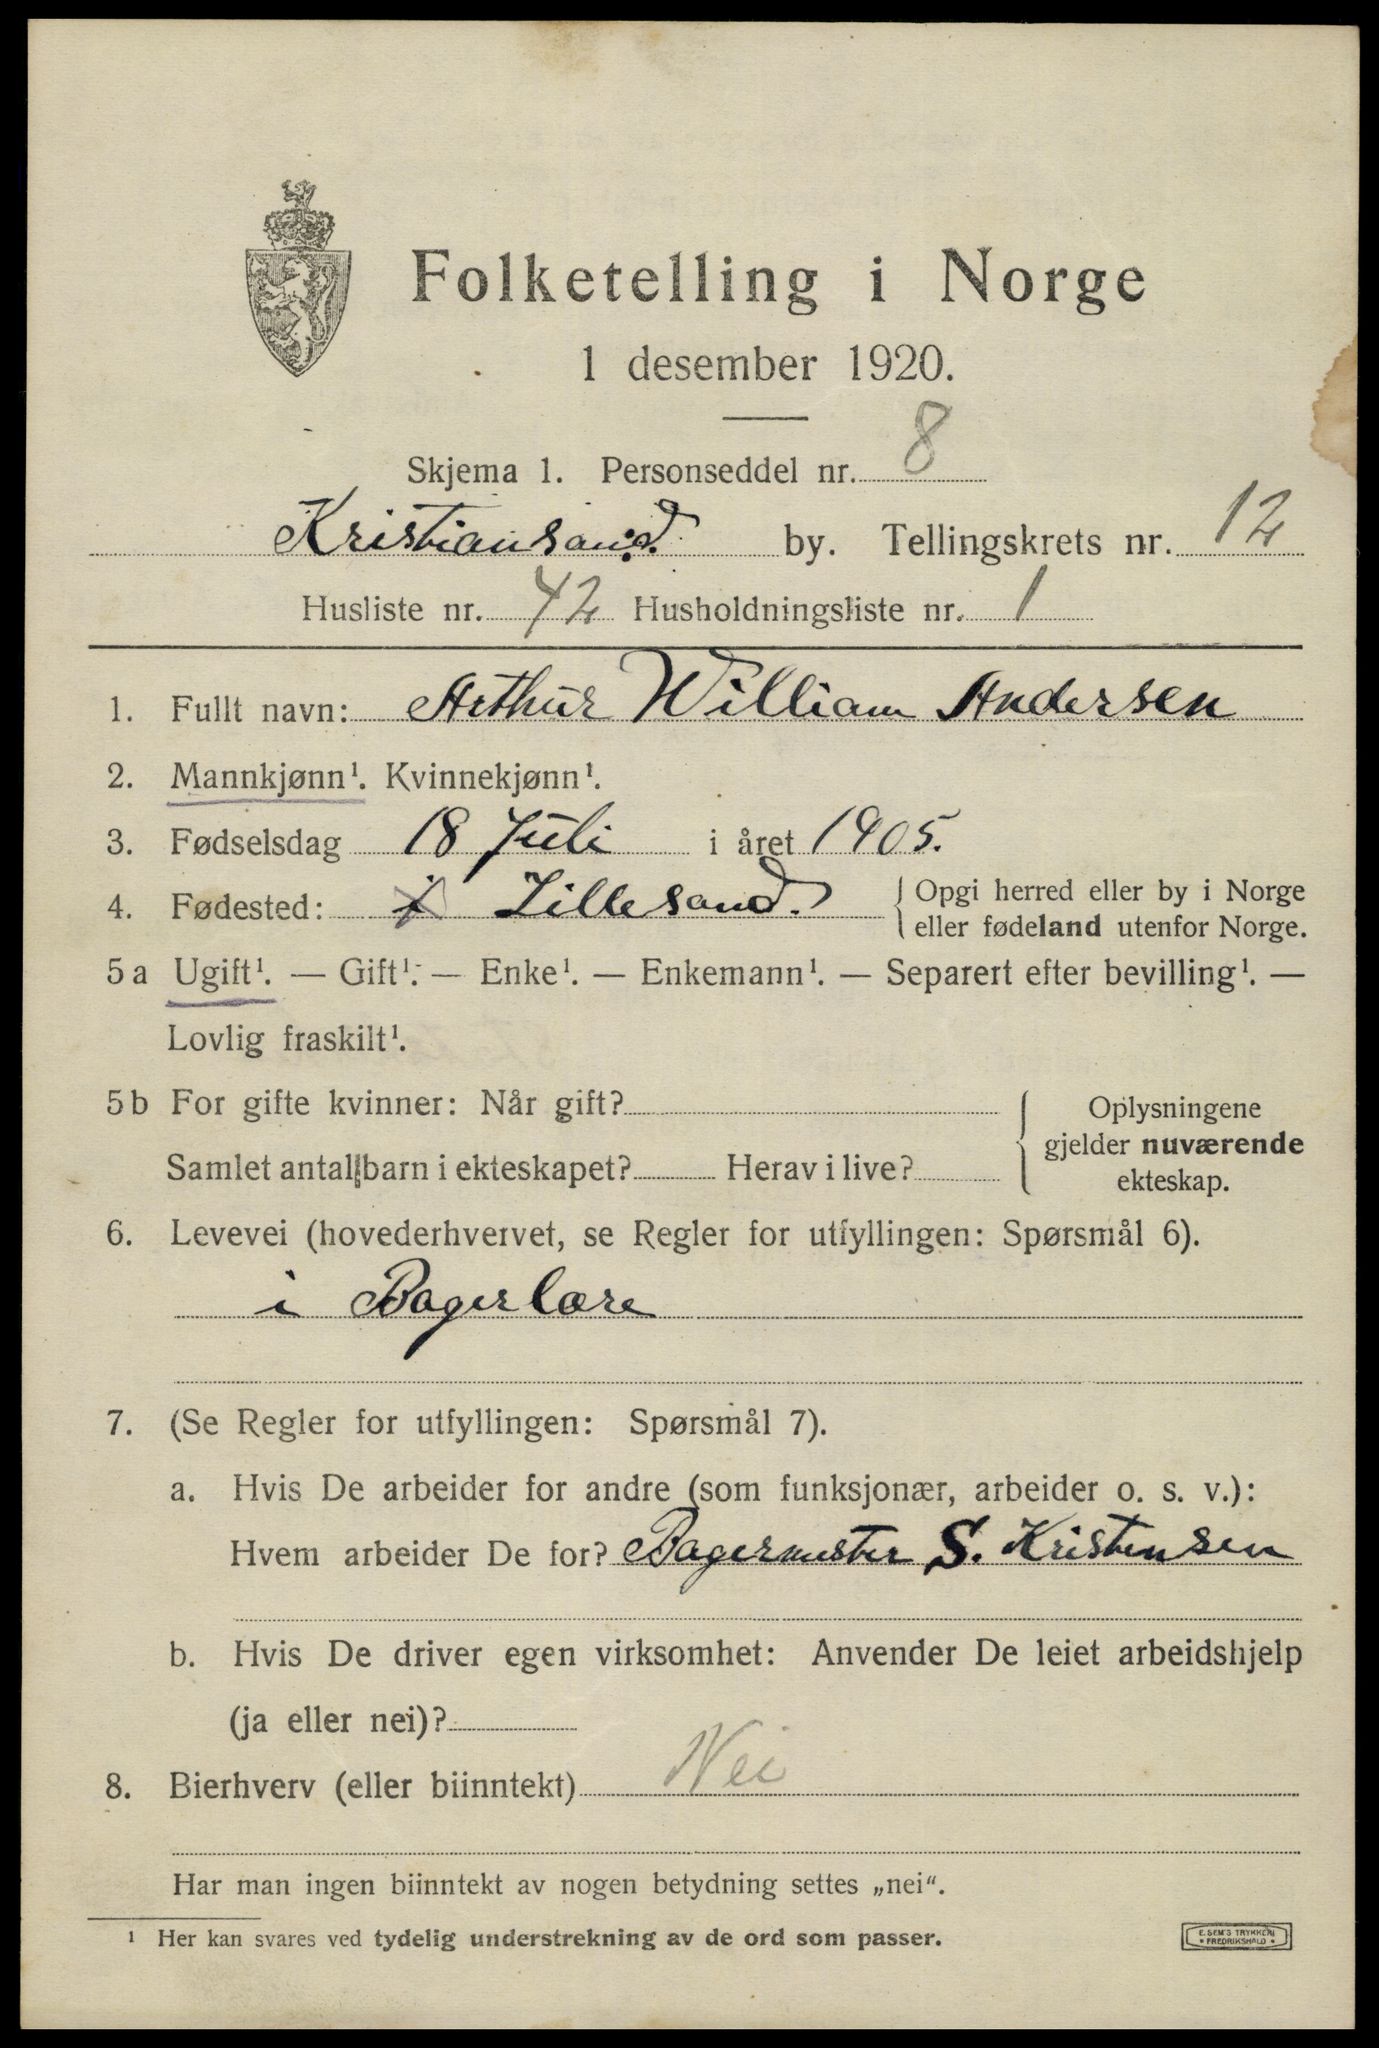 Folketelling i Norge
1 desember 1920.
Skjema 1. Personseddel nr. 8
Kristiansand. by. Tellingskrets nr. 12
Husliste nr. 42 Husholdningsliste nr. 1
1. Fullt navn: Arthur William Andersen
2. Mannkjønn¹. Kvinnekjønn¹.
3. Fødselsdag 18 Juli i året 1905.
4. Fødested: i Lillesand. { Opgi herred eller by i Norge
eller fødeland utenfor Norge.
5a Ugift¹. — Gift¹. — Enke¹. — Enkemann¹. — Separert efter bevilling¹. —
Lovlig fraskilt¹.
5b For gifte kvinner: Når gift? { Oplysningene
gjelder nuværende
Samlet antal barn i ekteskapet? Herav i live?
ekteskap.
6. Levevei (hovederhvervet, se Regler for utfyllingen: Spørsmål 6).
i Bagerlære
7. (Se Regler for utfyllingen: Spørsmål 7).
a. Hvis De arbeider for andre (som funksjonær, arbeider o. s. v.):
Hvem arbeider De for? Bagermester S. Kristensen
b. Hvis De driver egen virksomhet: Anvender De leiet arbeidshjelp
(ja eller nei)?
8. Bierhverv (eller biinntekt) Nei
Har man ingen biinntekt av nogen betydning settes „nei“.
¹ Her kan svares ved tydelig understrekning av de ord som passer.
E. SEM'S TRYKKERI
• FREDRIKSHALD •